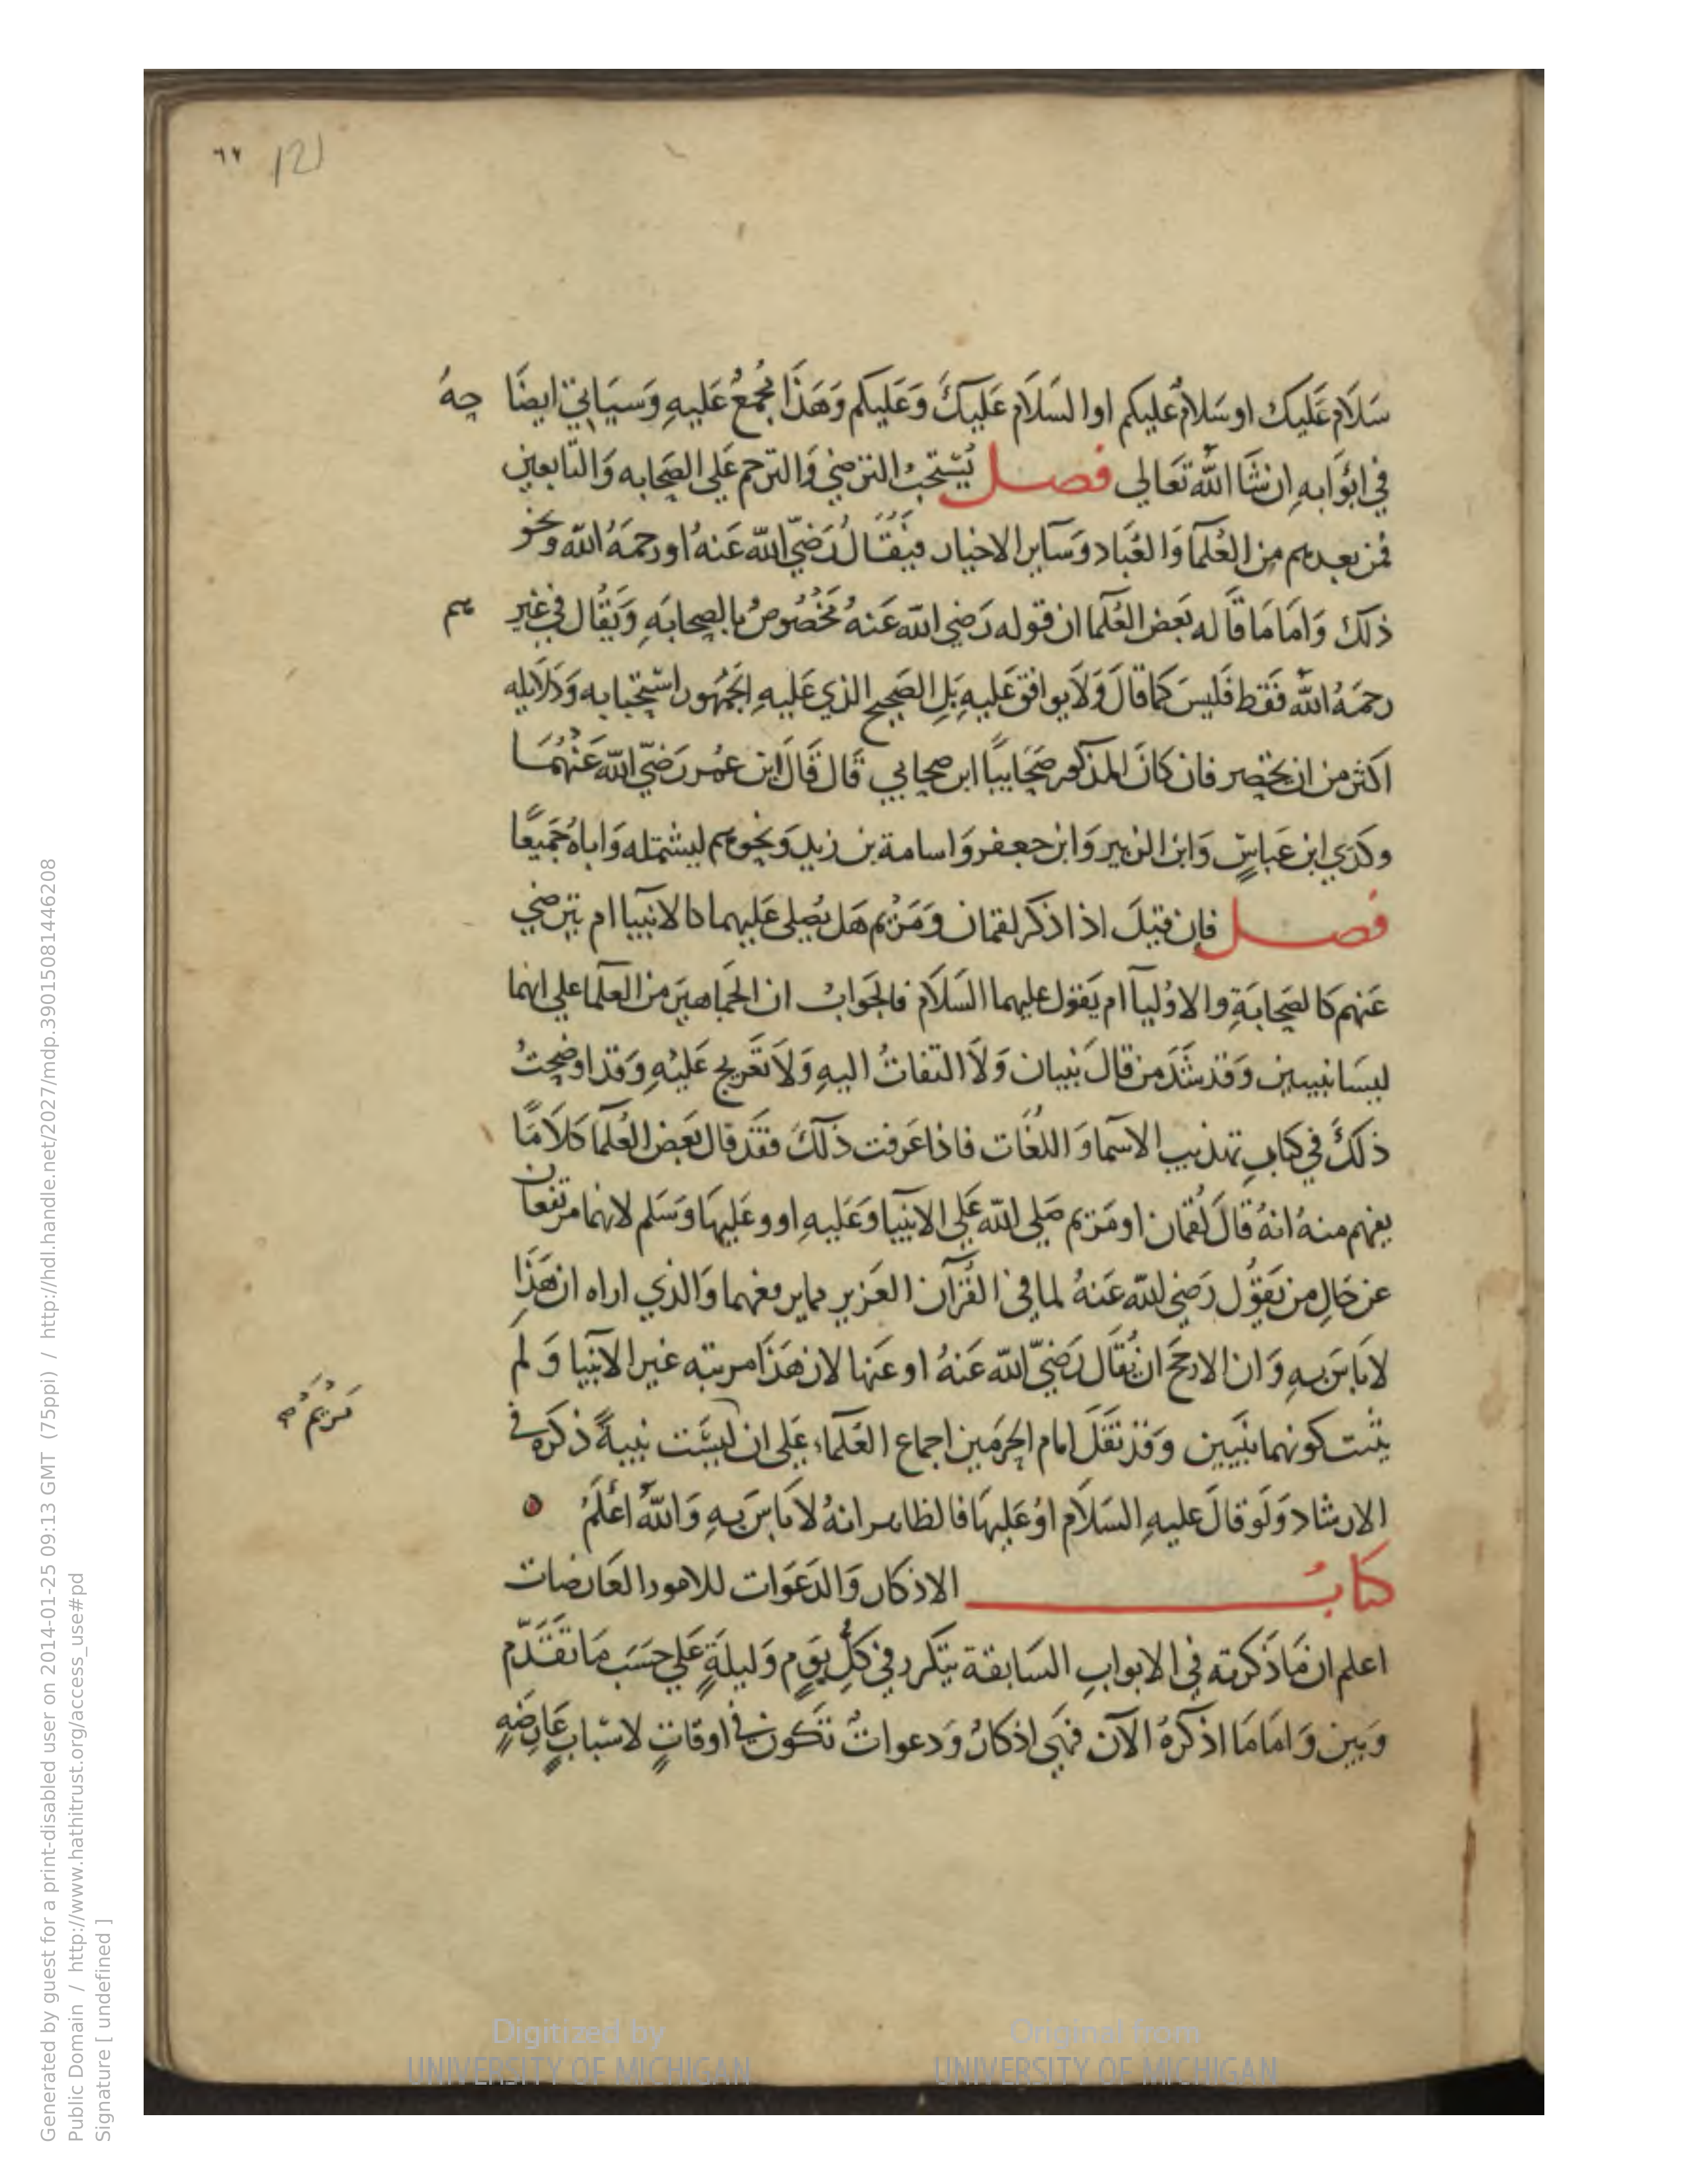 ٦٧ 121
سَلَام عَلَيك او سَلامٌ عليكم او السَلَام عَلَيكَ وَعَليكم وَهَذَا مُجمعٌ عَليهِ وَسيَاتي ايضًا
في ابوَابهِ ان شَا اللّه تعَالي فصل يُستحَبُ الترضي وَالترحم عَلي الصَحابه وَالتَابعين
فمن بعدهم من العُلمَا وَالعُبَاد وَسَاير الاخيار فيُقَالُ رَضيَ اللّه عَنهُ او رحمَهُ اللّه ونحو
ذلك وَامَا مَا قَاله بَعَض العُلمَا ان قوله رَضي اللّه عَنهُ مَخصُوصٌ بالصحابَهِ وَيُقَال في غير هم
رحمَهُ اللّه فَقَط فَليسَ كمَا قالَ وَلَا يوافق عَليهِ بَل الصَحيح الذي عَليهِ الجمهُور استِحبابه وَدَلَايله
اكثر من ان تحصر فان كانَ المذكور صَحَابيًا ابن صحابي قَال قَالَ ابن عُمر رَضيَ اللّه عَنهُمَا
وكذي ابن عَباسٍ وَابن الزبير وَابن جعفر وَاسامة بن زيد وَنحوهم ليشتمله وَاباهُ جَميعًا
فصل فان قيلَ اذا ذكر لقمان وَمَريم هَل يُصلي عَليهما كالانبيا ام يترضي
عَنهم كالصَحابَةِ والاوليَآ ام يَقول عليهما السَلَام فالجَوابُ ان الجَماهيرَ من العلَما علي انهما
ليسَا نبيين وَقد شَذَ من قالَ نبيان وَلَا التفاتُ اليهِ وَلَا تعَريج عَليهِ وَقد اوضحتُ
ذلكَ في كتابِ تهذيب الاسمَا وَ اللغَات فاذا عَرفت ذلكَ فقَد قال بَعَض العُلَما كَلَامًا
يفهم منهُ انهُ قالَ لُقمان او مَريم صَلي اللّه عَلَي الانبيَا وَعَليهِ او وعَليهَا وَسَلم لانهما مرتفعان
عن حَالِ من يَقوُل رَضي اللّه عَنهُ لما في القُرآن العَزيز مما يرفعهما وَالذي اراه ان هَذَا
لا بَاسَ بهِ وَ ان الارجح ان يُقَال رَضيَ اللّه عَنهُ او عَنها لان هَذَا مرتبه غير الانبيا وَ لم
يثبت كونهما نبَيين وَقد نَقَلَ امام الحرَمين اجماع العُلَمَاء عَلي ان ليسَت نبيةً ذكرَه في
مَريَمَ صح
الارشاد وَلَو قالَ عليهِ السَلَام اوُ عَليهَا فالظاهر انهُ لا بَاسَ بهِ وَاللّهُ اعْلَمُ
كتابُ الاذكار وَالدَعَوَات للامور العَارضَات
اعلم ان مَا ذَكرته في الابوابِ السَابقة يتكرر في كُل يَومٍ وَليلَةٍ عَلي حسَبَ مَا تقَدَّم
وَبين وَ امَا مَا اذكرهُ الآن فهَي اذكارٌ وَدعواتٌ تَكون في اوقاتٍ لاسبابٍ عَارِضَهٍ
Generated by guest for a print-disabled user on 2014-01-25 09:13 GMT (75ppi) / http://hdl.handle.net/2027/mdp.39015081446208
Public Domain / http://www.hathitrust.org/access_use#pd
Signature [ undefined ]
Digitized by UNIVERSITY OF MICHIGAN
Original from UNIVERSITY OF MICHIGAN